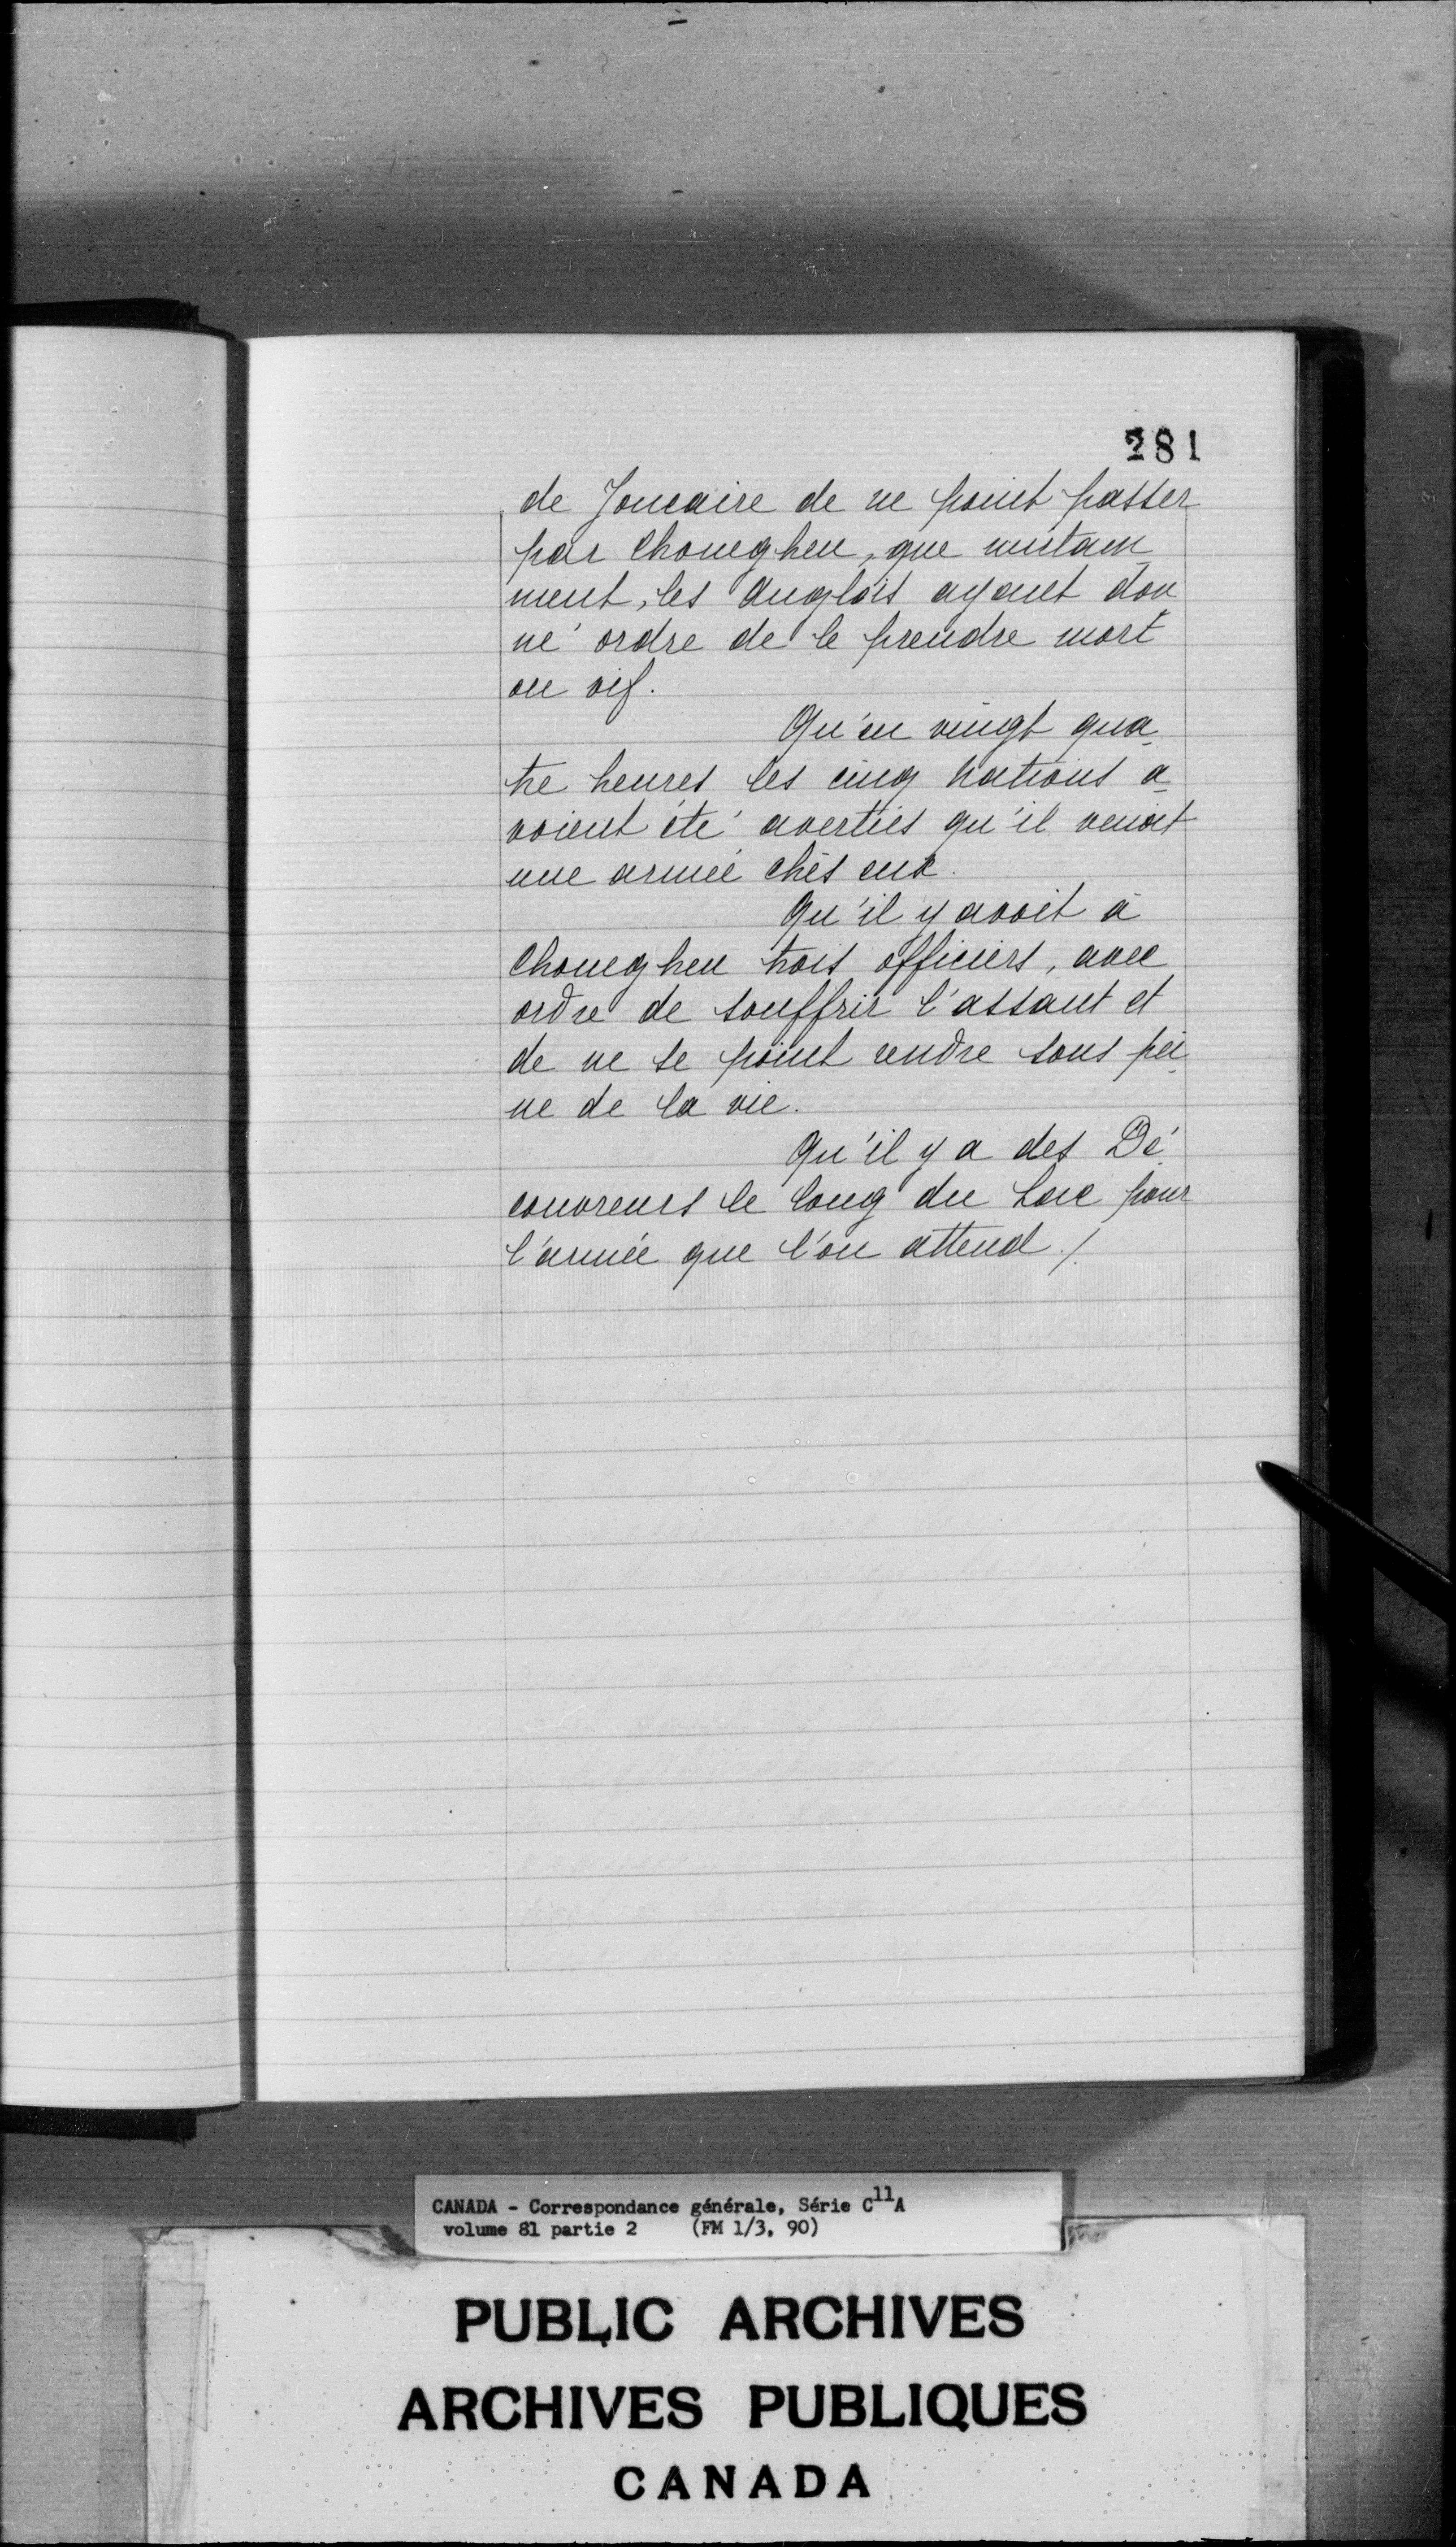 281
de Joncaire de ne point passer
par Choueghen, que nuitam_
ment, les Anglois ayant don_
né ordre de le prendre mort
ou vif.
Qu'en vingt qua_
tre heures les cinq nations a_
voient été averties qu'il venoit
une armée chès eux.
Qu'il y avoit à
Choueghen trois officiers, avec
ordre de souffrir l'assaut et
de ne se point rendre sous pei_
ne de la vie.
Qu'il y a des Dé_
couvreurs le long du Lac pour
l'armée que l'on attend ./.
CANADA - Correspondance générale, Série C11A
volume 81 partie 2 (FM 1/3, 90)
PUBLIC ARCHIVES
ARCHIVES PUBLIQUES
CANADA